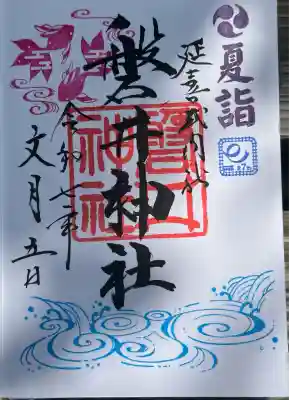 夏詣
延喜式内社
磐井神社
磐井神社
令和七年
文月五日